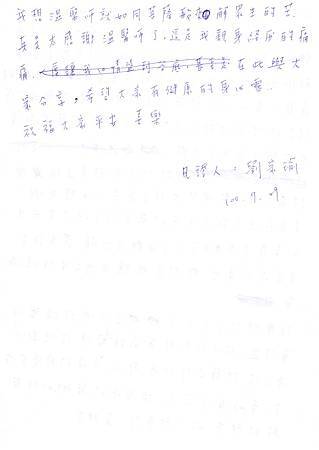 我想溫醫師就如同菩薩般 解眾生的苦
真是太感謝溫醫師了,這是我親身經歷的病
痛, 在此與大
家分享,希望大家有健康的身心靈.
祝福大家平安 喜樂.
見證人:劉
100.9.09